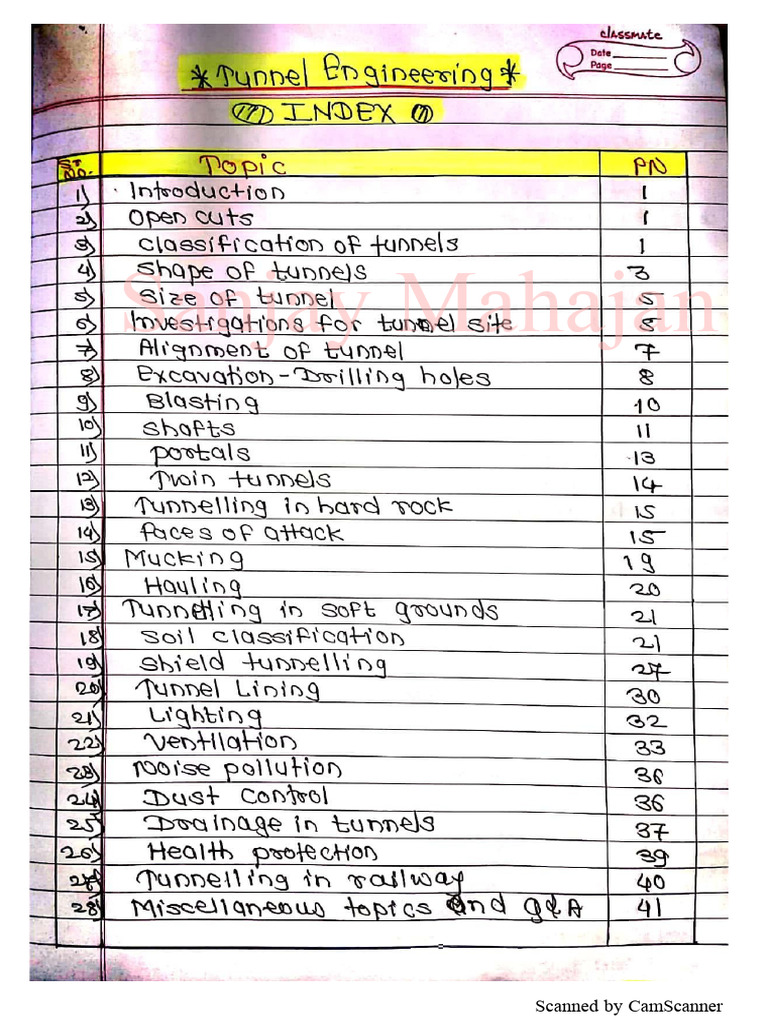 classmate
Date
Page
*Tunnel Engineering*
INDEX
Sr No. Topic PN
1) Introduction 1
2) Open cuts 1
3) Classification of tunnels 1
4) Shape of tunnels 3
5) Size of tunnel 5
6) Investigations for tunnel site 5
7) Alignment of tunnel 7
8) Excavation-Drilling holes 8
9) Blasting 10
10) Shafts 11
11) Portals 13
12) Twin tunnels 14
13) Tunnelling in hard rock 15
14) faces of attack 15
15) Mucking 19
16) Hauling 20
17) Tunnelling in soft grounds 21
18) Soil classification 21
19) Shield tunnelling 27
20) Tunnel Lining 30
21) Lighting 32
22) Ventilation 33
23) Noise pollution 36
24) Dust control 36
25) Drainage in tunnels 37
26) Health protection 39
27) Tunnelling in railway 40
28) Miscellaneous topics and Q&A 41
Sanjay Mahajan
Scanned by CamScanner